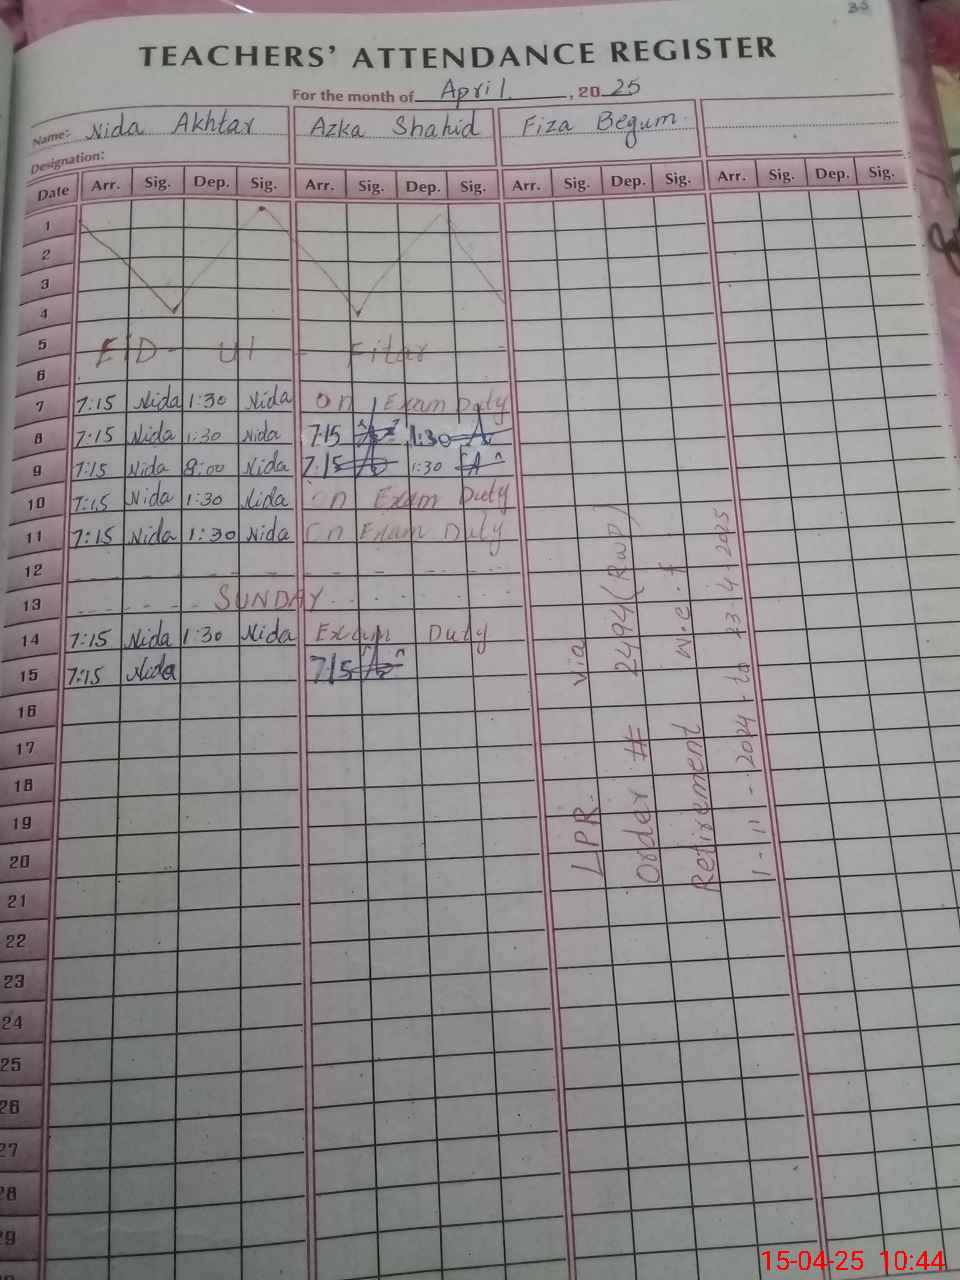 35
TEACHERS' ATTENDANCE REGISTER
For the month of April, 2025
Name: Nida Akhtar Azka Shahid Fiza Begum
Designation:
Date Arr. Sig. Dep. Sig. Arr. Sig. Dep. Sig. Arr. Sig. Dep. Sig. Arr. Sig. Dep. Sig.
1
2
3
4
5 EID - Ul - Fitar
6
7 7:15 Nida 1:30 Nida On Exam Duty
8 7:15 Nida 1:30 Nida 7:15 1:30
9 7:15 Nida 8:00 Nida 7:15 1:30
10 7:15 Nida 1:30 Nida On Exam Duty
11 7:15 Nida 1:30 Nida On Exam Duty
12
13 SUNDAY
14 7:15 Nida 1:30 Nida Exam Duty
15 7:15 Nida 7:15
16
17
18
19
20
21
22
23
24
25
26
27
28
29
LPR. via
Order # 2494 (RWP)
Retirement w.e.f
1-11-2024 to 23-4-2025
15-04-25 10:44